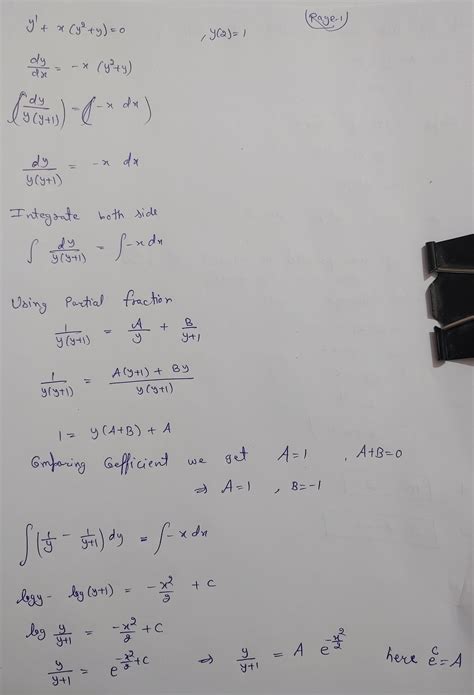 (Page-1)
y' + x (y²+y) = 0 , y(2) = 1
dy/dx = -x (y²+y)
∫ dy/y(y+1) = ∫ -x dx
dy/y(y+1) = -x dx
Integrate both side
∫ dy/y(y+1) = ∫ -x dx
Using Partial fraction
1/y(y+1) = A/y + B/y+1
1/y(y+1) = A(y+1) + By/y(y+1)
1 = y(A+B) + A
Comparing Coefficient we get A=1 , A+B=0
⇒ A=1 , B=-1
∫(1/y - 1/y+1) dy = ∫ -x dx
logy - log(y+1) = -x²/2 + C
log y/y+1 = -x²/2 + C
y/y+1 = e^(-x²/2 + C) ⇒ y/y+1 = A e^(-x²/2) here e^c = A